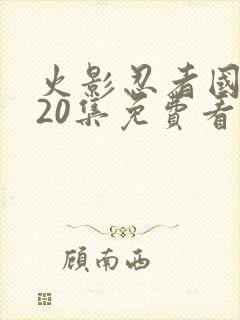 火影忍者國
20集免費看
顧南西